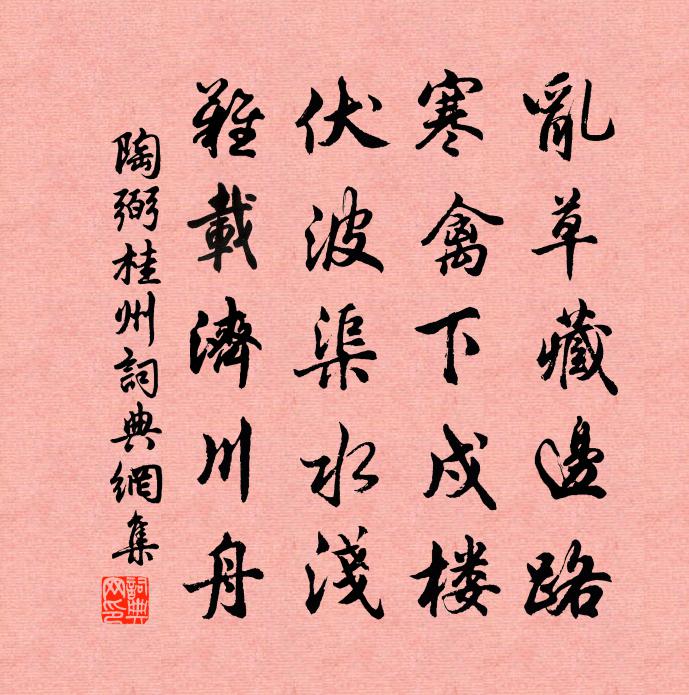 亂草藏邊路
寒禽下戍楼
伏波渠水淺
難載濟川舟
陶弼桂州詞典網集
詞典网印